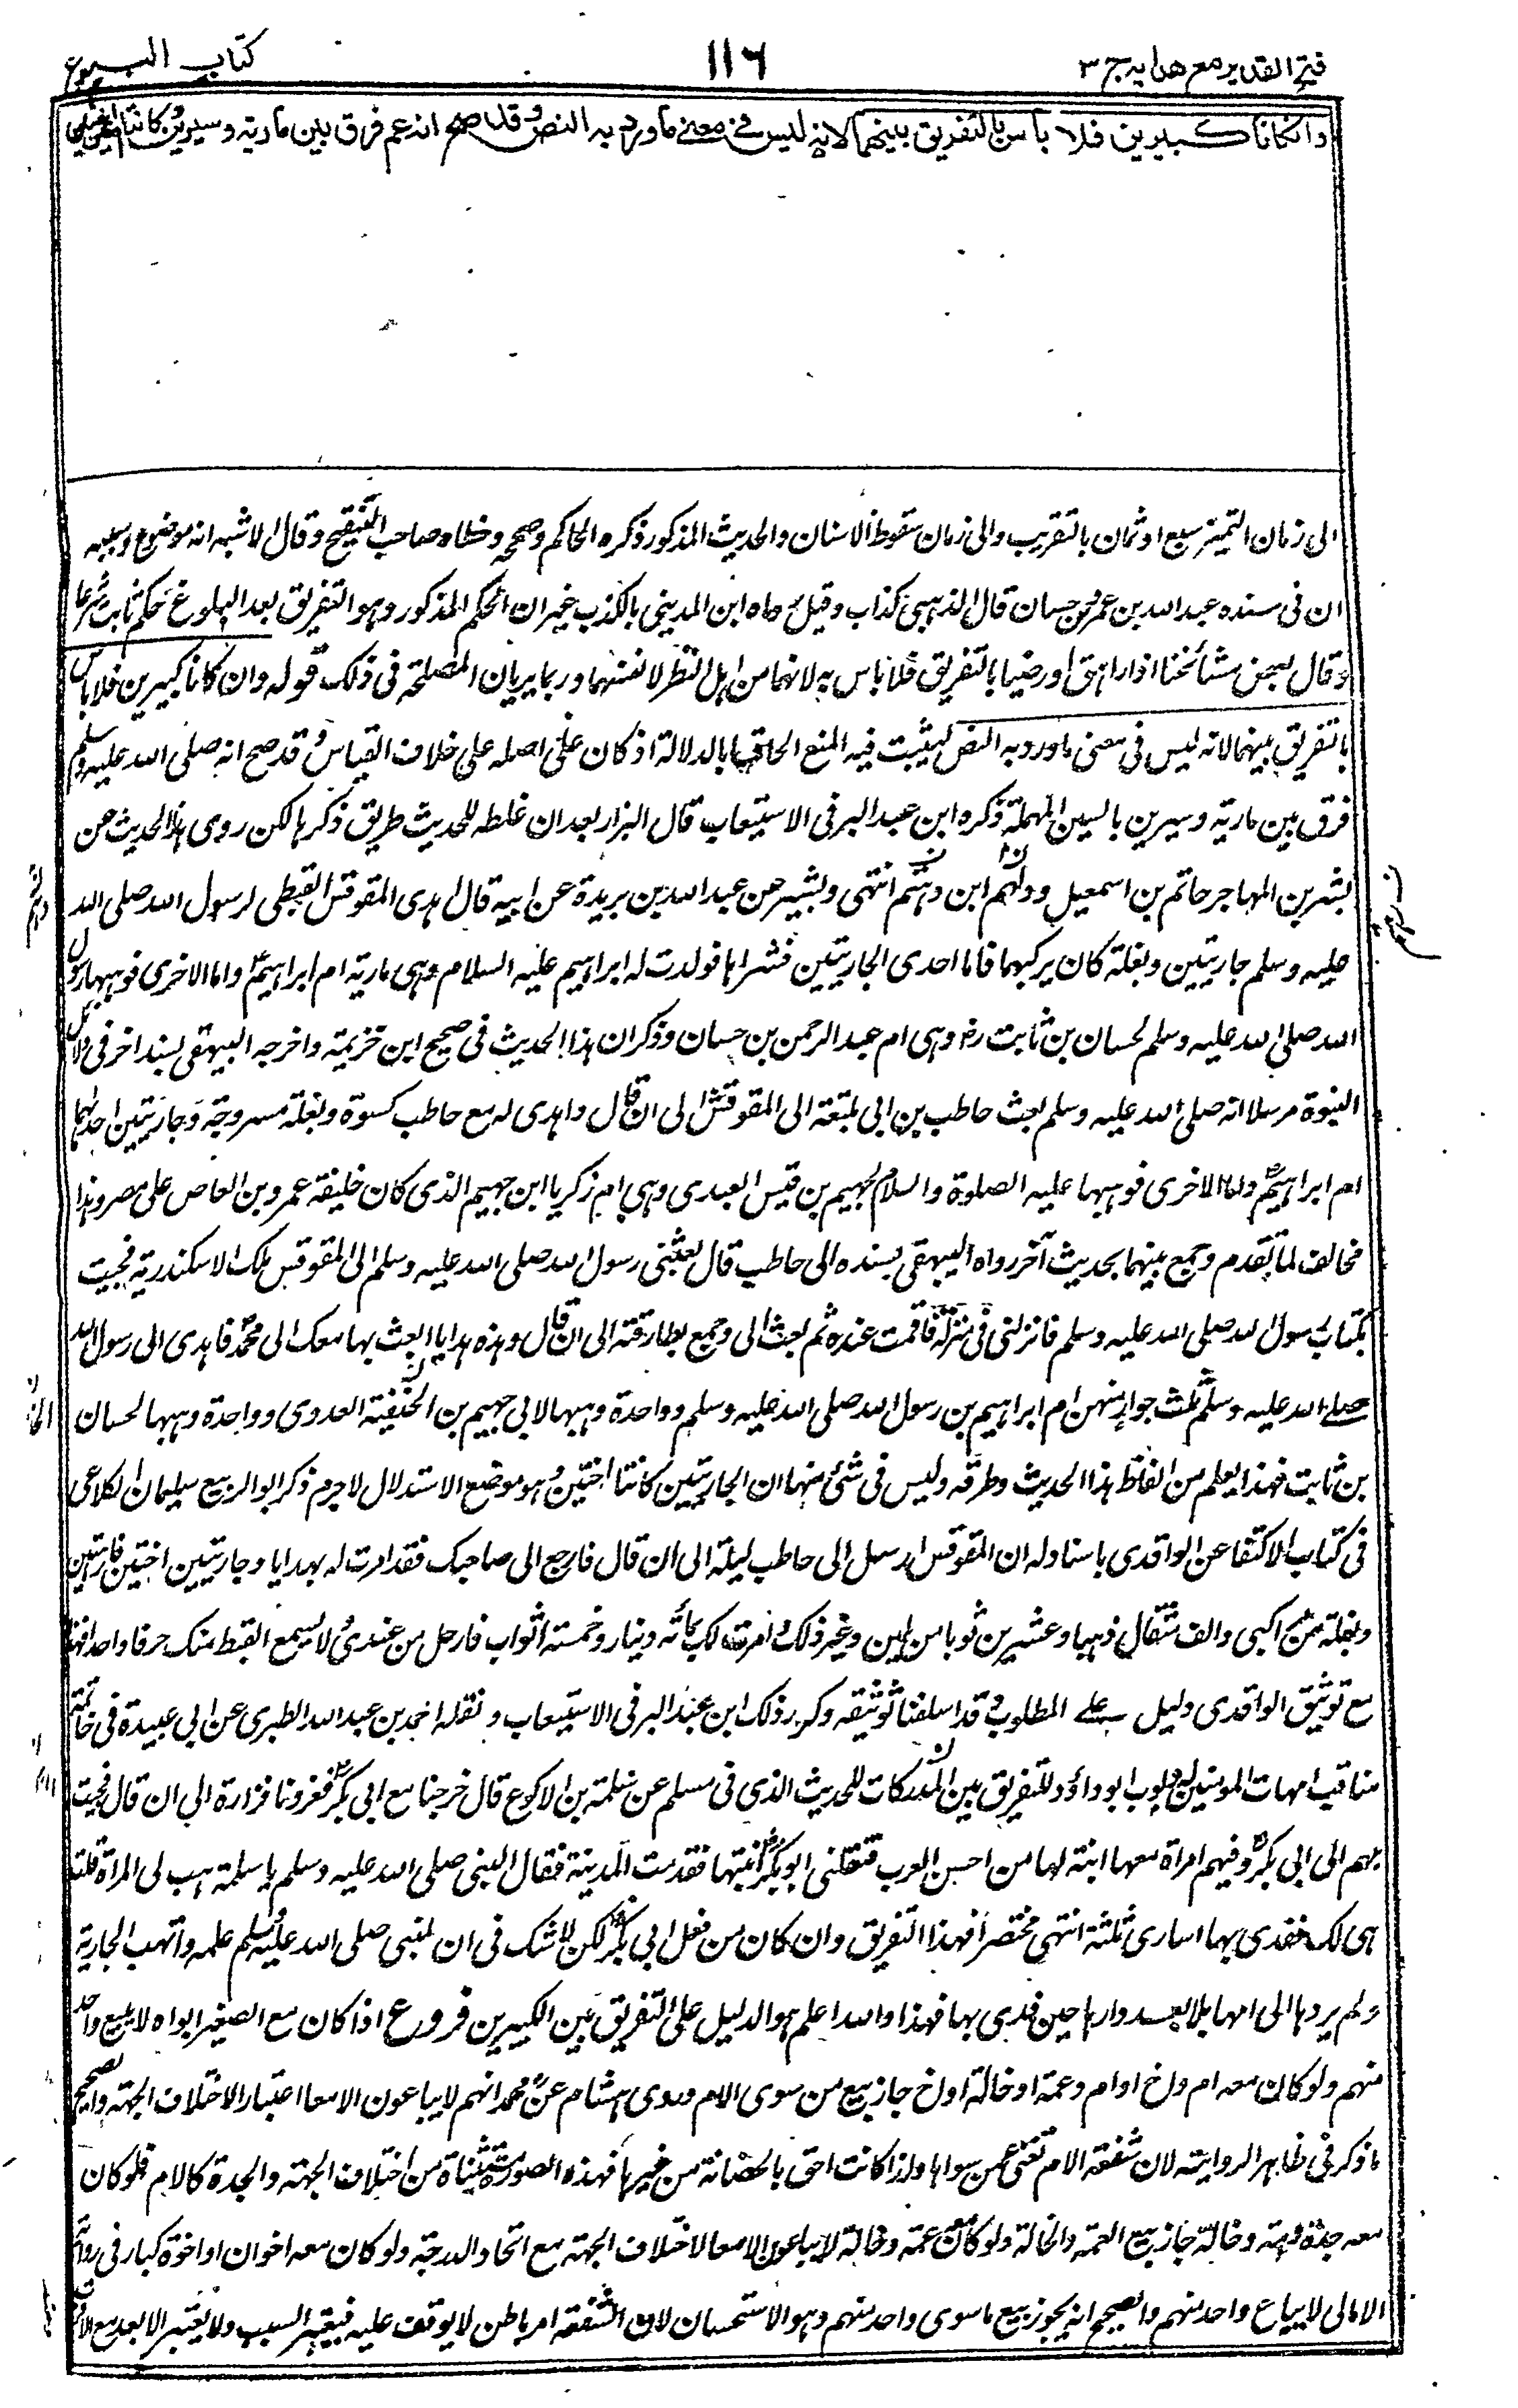 فتح القدير مع هدايه ج ٣
١١٦
كتاب البيوع
وان كانا كبيرين فلا باس بالتفريق بينهما لانه ليس في معنى ما ورد به النص وقد صح انه عم فرق بين مارية وسيرين وكانتا امتين اختين
الى زمان التميز سبع او ثمان بالتقريب والى زمان سقوط الاسنان والحديث المذكور ذكره الحاكم وصححه وخطاه صاحب التنقيح وقال الاشبه انه موضوع وسببه
ان فى سنده عبد الله بن عمرو بن حسان قال الذهبى كذاب وقيل رماه ابن المدينى بالكذب غير ان الحكم المذكور وهو التفريق بعد البلوغ حكم ثابت شرعا
وقال بعض مشائخنا اذا راهق او رضيا بالتفريق فلا باس به لانهما من اهل النظر لانفسهما وربما يريان المصلحة فى ذلك قوله وان كانا كبيرين فلا باس
بالتفريق بينهما لانه ليس فى معنى ما ورد به النص ليثبت فيه المنع الحاقا بالدلالة اذ كان على اصله على خلاف القياس وقد صح انه صلى الله عليه وسلم
فرق بين مارية وسيرين بالسين المهملة ذكره ابن عبد البر فى الاستيعاب قال البزار بعد ان غلطه للحديث طريق ذكرها لكن روى هذا الحديث عن
بشير بن المهاجر حاتم بن اسمعيل ودلهم ابن دهثم انتهى وبشير عن عبد الله بن بريدة عن ابيه قال اهدى المقوقس القبطى لرسول الله صلى الله
عليه وسلم جاريتين وبغلة كان يركبها فاما احدى الجاريتين فتسراها فولدت له ابراهيم عليه السلام وهى مارية ام ابراهيم واما الاخرى فوهبها رسول
الله صلى الله عليه وسلم لحسان بن ثابت رض وهى ام عبد الرحمن بن حسان وذكر ان هذا الحديث فى صحيح ابن خزيمة واخرجه البيهقى بسند اخر فى دلائل
النبوة مرسلا انه صلى الله عليه وسلم بعث حاطب بن ابى بلتعة الى المقوقس الى ان قال واهدى له مع حاطب كسوة وبغلة مسروجة وجاريتين احدهما
ام ابراهيم واما الاخرى فوهبها عليه الصلوة والسلام لجهيم بن قيس العبدرى وهى ام زكريا ابن جهيم الذى كان خليفة عمرو بن العاص على مصر وهذا
مخالف لما تقدم وجمع بينهما بحديث آخر رواه البيهقى بسنده الى حاطب قال بعثنى رسول الله صلى الله عليه وسلم الى المقوقس ملك الاسكندرية فجيت
بكتاب رسول الله صلى الله عليه وسلم فانزلنى فى منزله فاقمت عنده ثم بعث الى وجمع بطارقته الى ان قال وهذه هدايا ابعث بها معك الى محمد فاهدى الى رسول الله
صلى الله عليه وسلم ثلث جوار منهن ام ابراهيم بن رسول الله صلى الله عليه وسلم وواحدة وهبها لابى جهيم بن الحنفية العدوى وواحدة وهبها لحسان
بن ثابت فهذا يعلم من الفاظ هذا الحديث وطرقه وليس فى شئ منها ان الجاريتين كانتا اختين وهو موضع الاستدلال لا جرم ذكر ابو الربيع سليمان الكلاعى
فى كتاب الاكتفا عن الواقدى باسناد له ان المقوقس ارسل الى حاطب ليلة الى ان قال فارجع الى صاحبك فقد امرت له بهدايا وجاريتين اختين فارهتين
وبغلة من مراكبى والف مثقال ذهبا وعشرين ثوبا من لين وغير ذلك وامرت لك بمائة دينار وخمسة اثواب فارحل من عندى ولا يسمع القبط منك حرفا واحدا فهذا
مع توثيق الواقدى دليل على المطلوب وقد اسلفنا توثيقه وكرر ذلك ابن عبد البر فى الاستيعاب ونقله احمد بن عبد الله الطبرى عن ابى عبيدة فى خاتمة
مناقب امهات المومنين وبوب ابو داؤد للتفريق بين المدركات للحديث الذى فى مسلم عن سلمة بن الاكوع قال خرجنا مع ابى بكر فغزونا فزارة الى ان قال فجيت
بهم الى ابى بكر وفيهم امراة معها ابنة لها من احسن العرب فنفلنى ابو بكر ابنتها فقدمت المدينة فقال النبى صلى الله عليه وسلم يا سلمة هب لى المراة قلت
هى لك ففدى بها اسارى ثلثة انتهى مختصرا فهذا التفريق وان كان من فعل ابى بكر لكن لا شك فى ان النبى صلى الله عليه وسلم علمه واتهب الجارية
ولم يردها الى امها بل ابعد دارها حين فدى بها فهذا والله اعلم هو الدليل على التفريق بين الكبيرين فروع اذا كان مع الصغير ابواه لا يبيع واحد
منهم ولو كان معه ام واخ او ام وعمة او خالة او اخ جاز بيع من سوى الام وروى هشام عن محمد انهم لا يباعون الا معا اعتبار الاختلاف الجهة والصحيح
ما ذكر فى ظاهر الرواية لان شفقة الام تغنى عمن سواها ولذا كانت احق بالحضانة من غيرها فهذه الصورة مستثناة من اختلاف الجهة والجدة كالام فلو كان
معه جدة وعمة وخالة جاز بيع العمة والخالة ولو كان معه عمة وخالة لا يباعون الا معا لاختلاف الجهة مع اتحاد الدرجة ولو كان معه اخوان او اخوة كبار فى رواية
الامالى لا يباع واحد منهم والصحيح انه يجوز بيع ما سوى واحد منهم وهو الاستحسان لان الشفقة امر باطن لا يوقف عليه فيعتبر السبب ولا يعتبر الابعد مع الاقرب